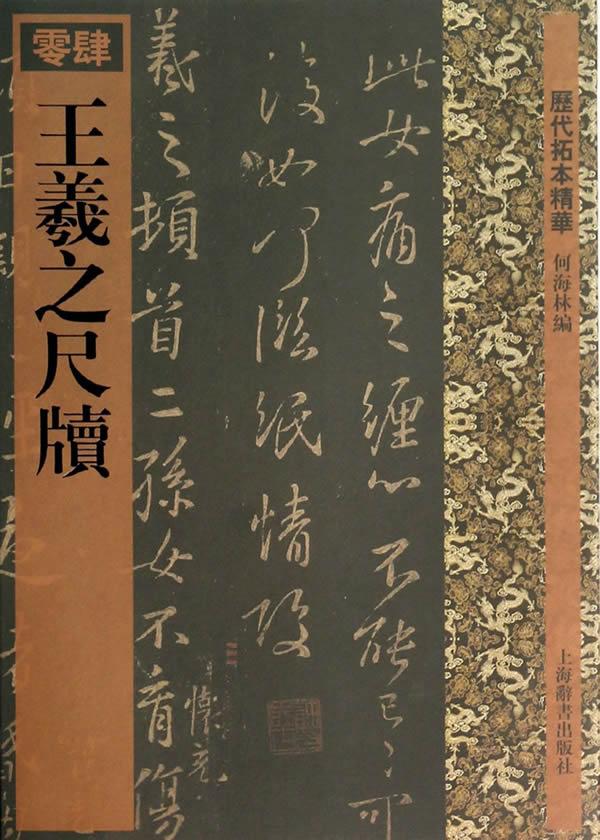 歷代拓本精華
何海林編
上海辭書出版社
此女痛之纏心不能已已可
復如何臨紙情酸
羲之頓首二孫女不育傷
懷充
零肆
王羲之尺牘